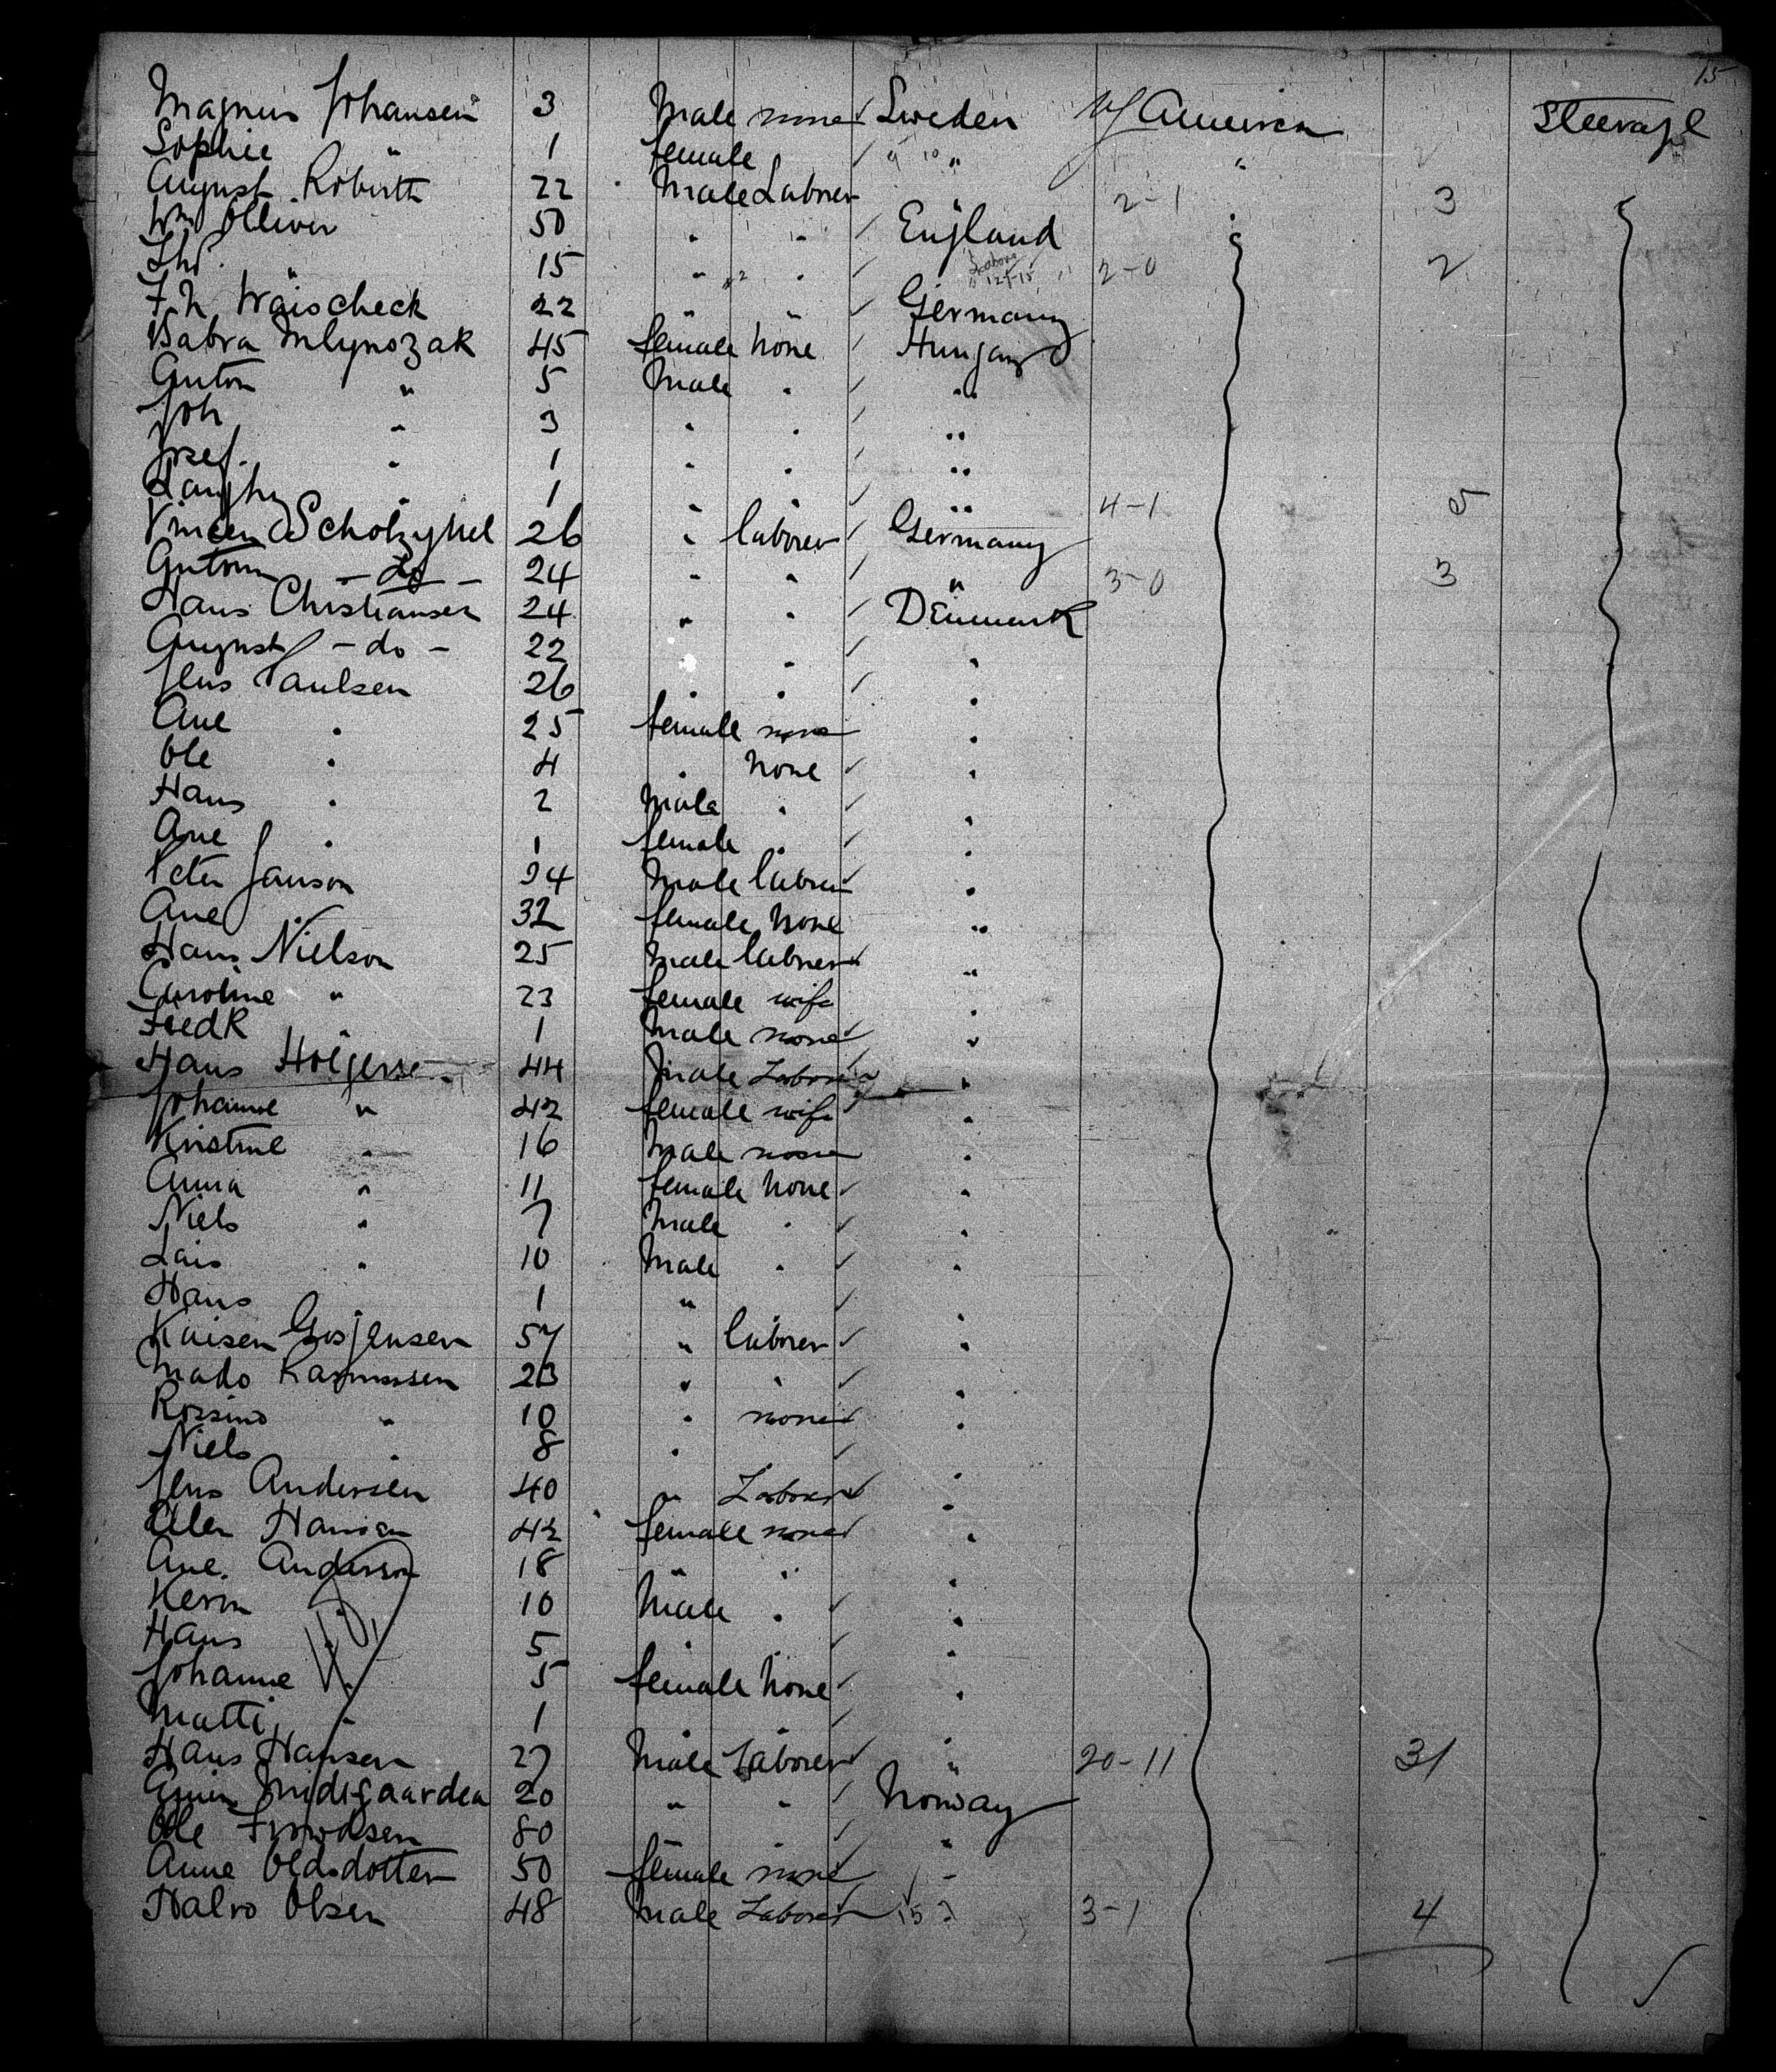 15
Magnus Johansen 3 Male none ✓ Sweden U S America Steerage
Sophie " 1 female ✓ " "
August Roberth 22 Male Laborer 2-1 3
Wm Olliver 50 " " ✓ England
Thos. " 15 " " ✓ 2-0 2
F. N. Waischeck 22 " ✓ Germany
Babra Mlynozak 45 female none Hungary
Anton " 5 Male " ✓ "
Joh " 3 " " ✓ "
Jozef. " 1 " " ✓ "
" 1 " " ✓ " 4-1 5
Vincen Scholzyhel 26 " laborer Germany
Antonn - do - 24 " " ✓ " 3-0 3
Hans Christiansen 24 " " ✓ Denmark
August - do - 22 " " ✓ "
Jens Paulsen 26 " " ✓ "
Ane " 25 female none "
Ole " 4 " none ✓ "
Hans " 2 Male " ✓ "
Ane " 1 female " ✓ "
Peter Janson 34 Male labrer "
Ane " 32 female none "
Hans Nielson 25 Male labrer ✓ "
Caroline " 23 female wife "
Fredk " 1 Male none ✓ "
Hans Holgerse 44 Male Laborer "
Johanne " 42 female wife "
Kristine " 16 Male none "
Anna " 11 female none ✓ "
Niels " 7 Male " ✓ "
Lars " 10 Male " ✓ "
Hans 1 " ✓ "
Kaisen Gosjensen 57 " laborer ✓ "
Mads Rasmussen 23 " " ✓ "
Rossine " 10 " none ✓ "
Niels " 8 " ✓
Jens Andersen 40 " Laborer ✓ "
Ellen Hansen 42 female none ✓ "
Ane. Anderson 18 " "
Kern 10 Male " ✓ "
Hans 5 ✓ "
Johanne 5 female none ✓ "
Matti " 1 ✓
Hans Hansen 27 Male Laborer ✓ " 20-11 31
Midtgaarden 20 " " ✓ Norway
Ole 80 " ✓ "
Anne Olesdotter 50 female none ✓ "
Halvo Olsen 48 Male Laborer 3-1 4